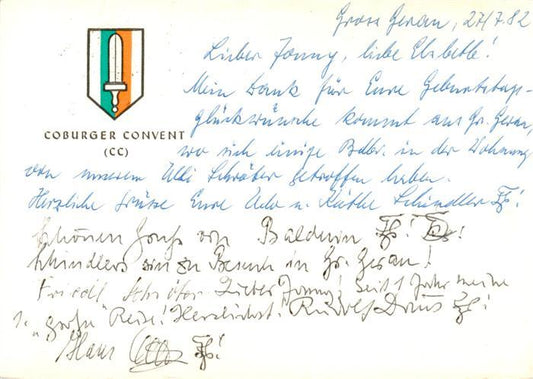 Gross Gerau, 27/7.82
Lieber Jonny, liebe Elsbeth!
Mein Dank für Eure Geburtstags-
glückwünsche kommt aus Gr. Gerau,
COBURGER CONVENT
(CC)
wo sich einige Bdbr. in der Wohnung
von unserem Alli Schröter getroffen haben.
Herzliche Grüsse Eure Ado u. Käthe Schindler
Schönen Gruß von Balduin
Schindlers sin zu Besuch in Gr. Gerau!
Friedl Schröter Lieber Jonny! Seit 1 Jahr meine
1. "große" Reise! Herzlichst! Rudolf
Hans